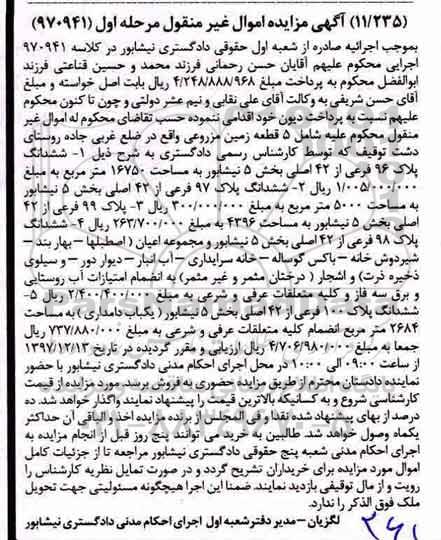 (۱۱/۲۳۵) آگهی مزایده اموال غیر منقول مرحله اول (۹۷۰۹۴۱)
بموجب اجرائیه صادره از شعبه اول حقوقی دادگستری نیشابور در کلاسه ۹۷۰۹۴۱
اجرایی محکوم علیهم آقایان حسن رحمانی فرزند محمد و حسین قناعتی فرزند
ابوالفضل محکوم به پرداخت مبلغ ۴/۲۴۸/۸۸۸/۹۶۸ ریال بابت اصل خواسته و مبلغ
آقای حسن شریفی به وکالت آقای علی نقابی و نیم عشر دولتی و چون تا کنون محکوم
علیهم نسبت به پرداخت دیون خود اقدامی ننموده حسب تقاضای محکوم له اموال غیر
منقول محکوم علیه شامل ۵ قطعه زمین مزروعی واقع در ضلع غربی جاده روستای
دشت توقیف که توسط کارشناس رسمی دادگستری به شرح ذیل ۱- ششدانگ
پلاک ۹۶ فرعی از ۴۲ اصلی بخش ۵ نیشابور به مساحت ۱۶۷۵۰ متر مربع به مبلغ
۱/۰۰۵/۰۰۰/۰۰۰ ریال ۲- ششدانگ پلاک ۹۷ فرعی از ۴۲ اصلی بخش ۵ نیشابور
به مساحت ۵۰۰۰ متر مربع به مبلغ ۳۰۰/۰۰۰/۰۰۰ ریال ۳- پلاک ۹۹ فرعی از ۴۲
اصلی بخش ۵ نیشابور به مساحت ۴۳۹۶ به مبلغ ۲۶۳/۷۰۰/۰۰۰ ریال ۴- ششدانگ
پلاک ۹۸ فرعی از ۴۲ اصلی بخش ۵ نیشابور و مجموعه اعیان (اصطبلها - بهار بند -
شیردوش خانه - باکس گوساله - خانه سرایداری - آب انبار - دیوار دور - و سیلوی
ذخیره ذرت) و اشجار (درختان مثمر و غیر مثمر) به انضمام امتیازات آب روستایی
و برق سه فاز و کلیه متعلقات عرفی و شرعی به مبلغ ۲/۴۰۰/۴۰۰/۰۰۰ ریال ۵-
ششدانگ پلاک ۱۰۰ فرعی از ۴۲ اصلی بخش ۵ نیشابور (یکباب دامداری) به مساحت
۲۶۸۴ متر مربع انضمام کلیه متعلقات عرفی و شرعی به مبلغ ۷۳۷/۸۸۰/۰۰۰ ریال
جمعا به مبلغ ۴/۷۰۶/۹۸۰/۰۰۰ ریال ارزیابی و مقرر گردیده در تاریخ ۱۳۹۷/۱۲/۱۳
از ساعت ۰۹:۰۰ الی ۱۰:۰۰ در محل اجرای احکام مدنی دادگستری نیشابور با حضور
نماینده دادستان محترم از طریق مزایده حضوری به فروش برسد. مورد مزایده از قیمت
کارشناسی شروع و به کسانیکه بالاترین قیمت را پیشنهاد نمایند واگذار خواهد شد. ده
درصد از بهای پیشنهاد شده نقدا و فی المجلس از برنده مزایده اخذ و الباقی آن حداکثر
یکماه وصول خواهد شد. طالبین به خرید می توانند پنج روز قبل از انجام مزایده به
اجرای احکام مدنی شعبه پنج حقوقی دادگستری نیشابور مراجعه تا از جزئیات کامل
اموال مورد مزایده برای خریداران تشریح گردد و در صورت تمایل نظریه کارشناس را
رویت و از مال توقیفی بازدید نمایند. ضمنا این اجرا هیچگونه مسئولیتی جهت تحویل
ملک فوق الذکر را ندارد.
لگزیان - مدیر دفتر شعبه اول اجرای احکام مدنی دادگستری نیشابور